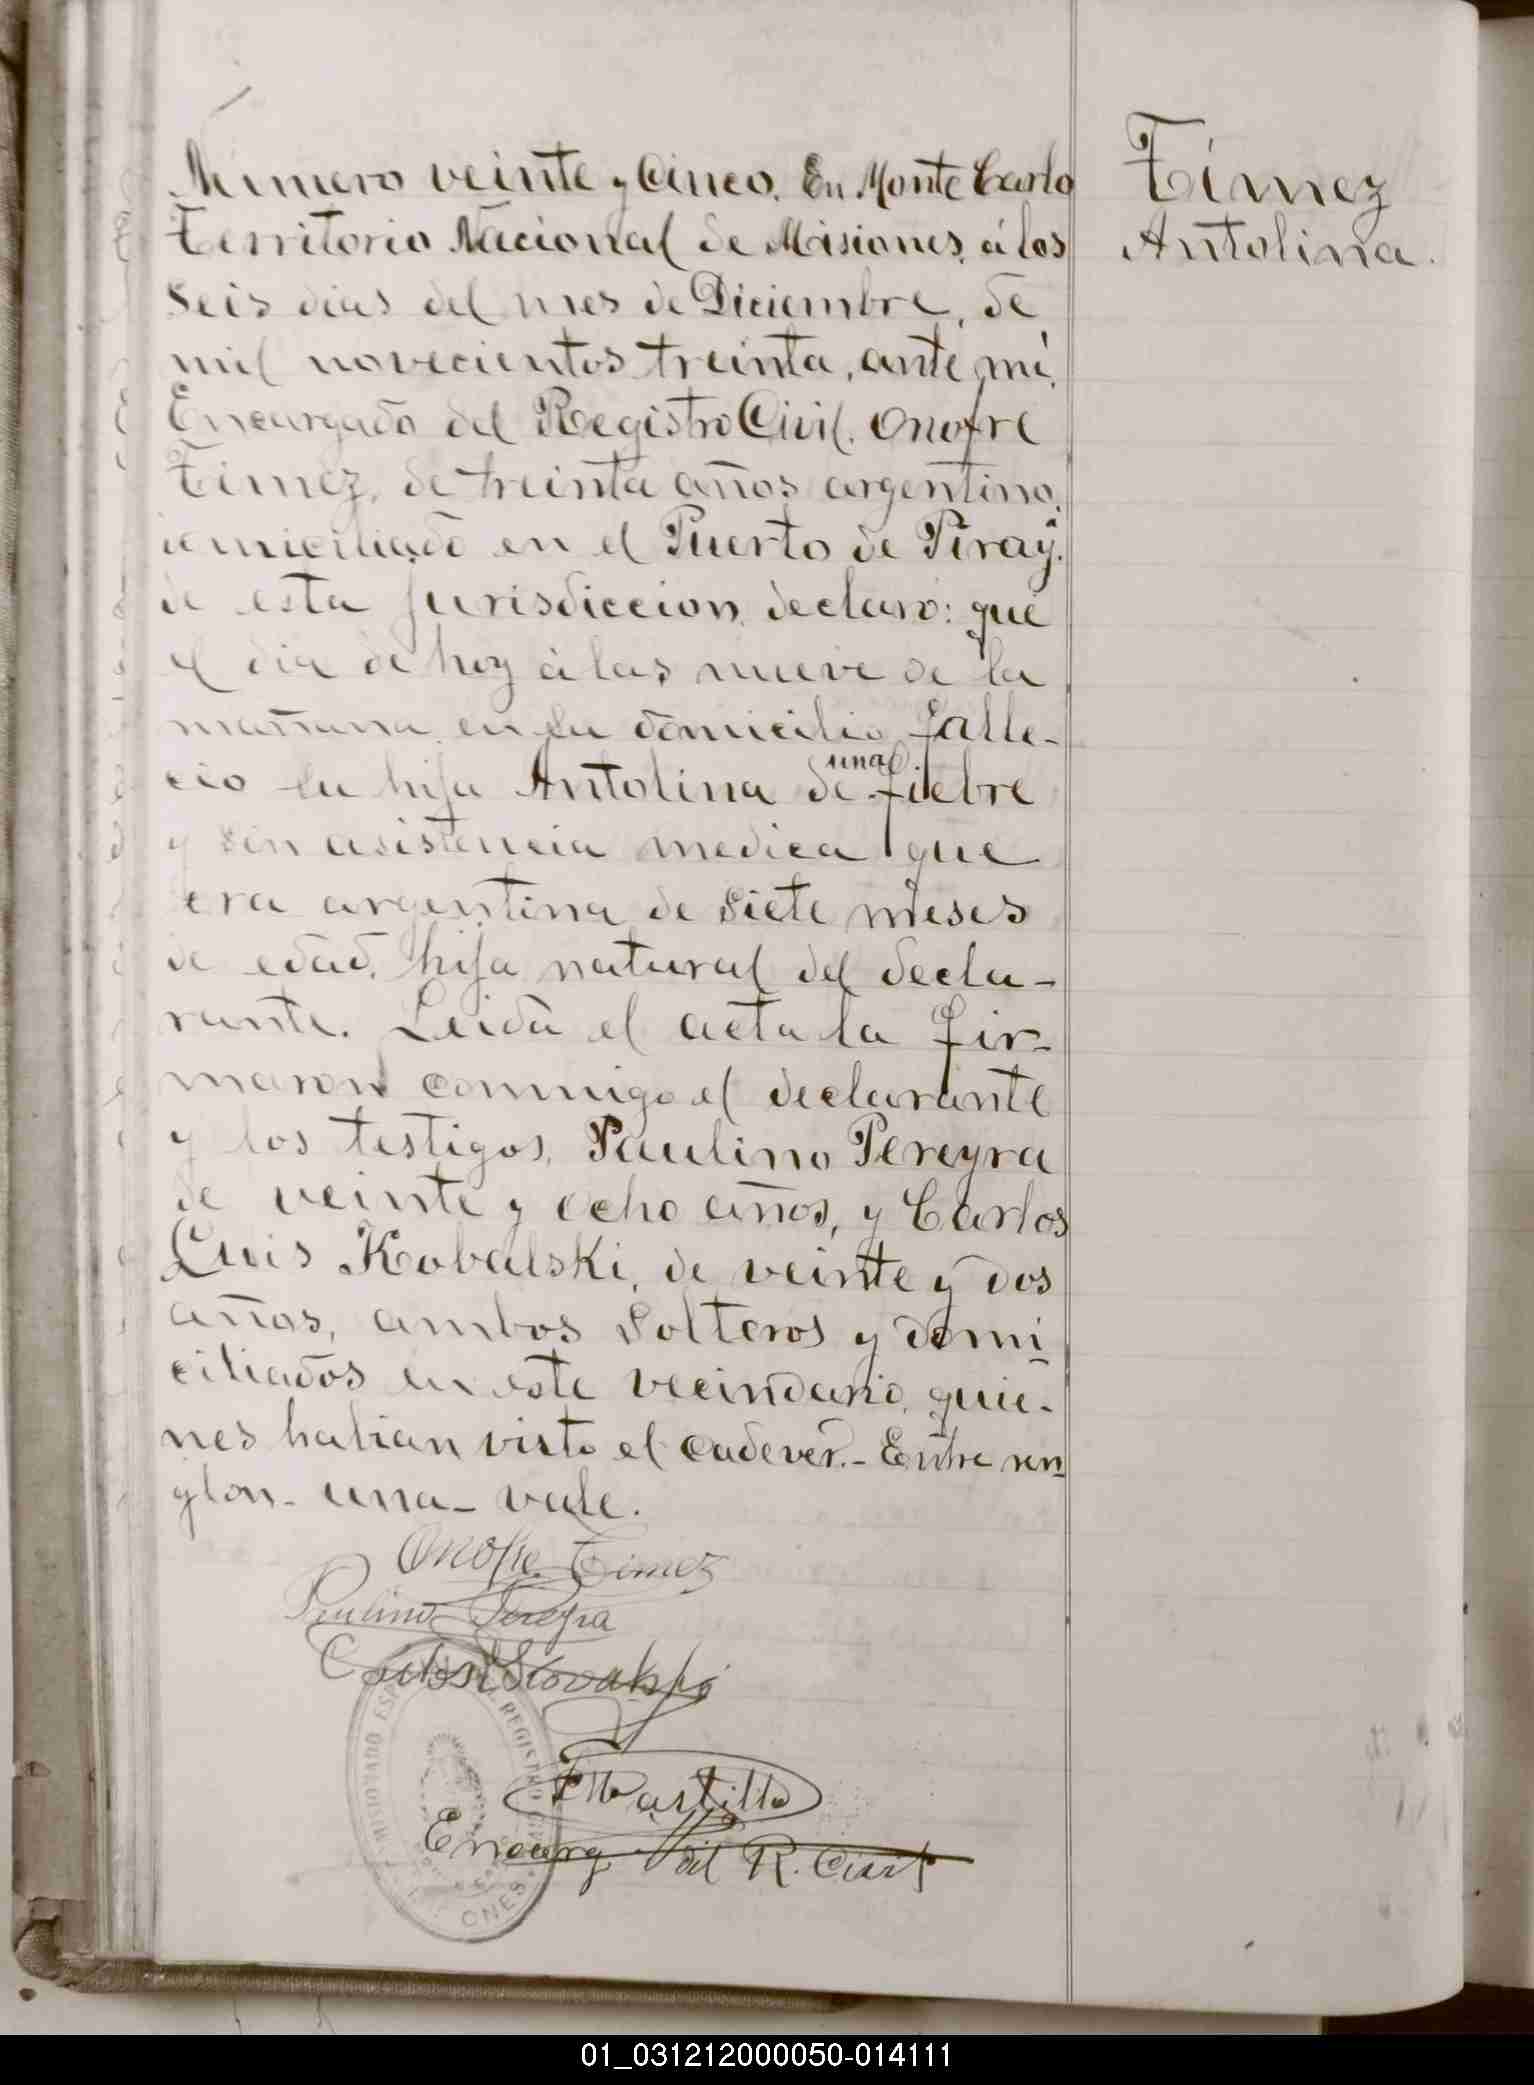 Número veinte y Cinco. En Monte Carlo
Territorio Nacional de Misiones, á los
seis dias del mes de Diciembre, de
mil novecientos treinta, ante mi,
Encargado del Registro Civil. Onofre
Timez, de treinta años, argentino,
domiciliado en el Puerto de Piray,
de esta jurisdiccion, declaro: que
el dia de hoy á las nueve de la
mañana, en su domicilio falle-
cio su hija Antolina de una fiebre
y sin asistencia medica que
era argentina de siete meses
de edad, hija natural del decla-
rante. Leida el acta la fir-
maron conmigo el declarante
y los testigos, Paulino Pereyra
de veinte y ocho años, y Carlos
Luis Kobalski, de veinte y dos
años, ambos solteros y domi
ciliados en este vecindario, quie-
nes habian visto el cadever.- Entre ren-
glon- una- vale.
Timez
Antolina.
Onofre Timez
Paulino Pereyra
Carlos L Kovalski
Castillo
Encarg del R. Civil
REGISTRO
ONES
01_031212000050-014111